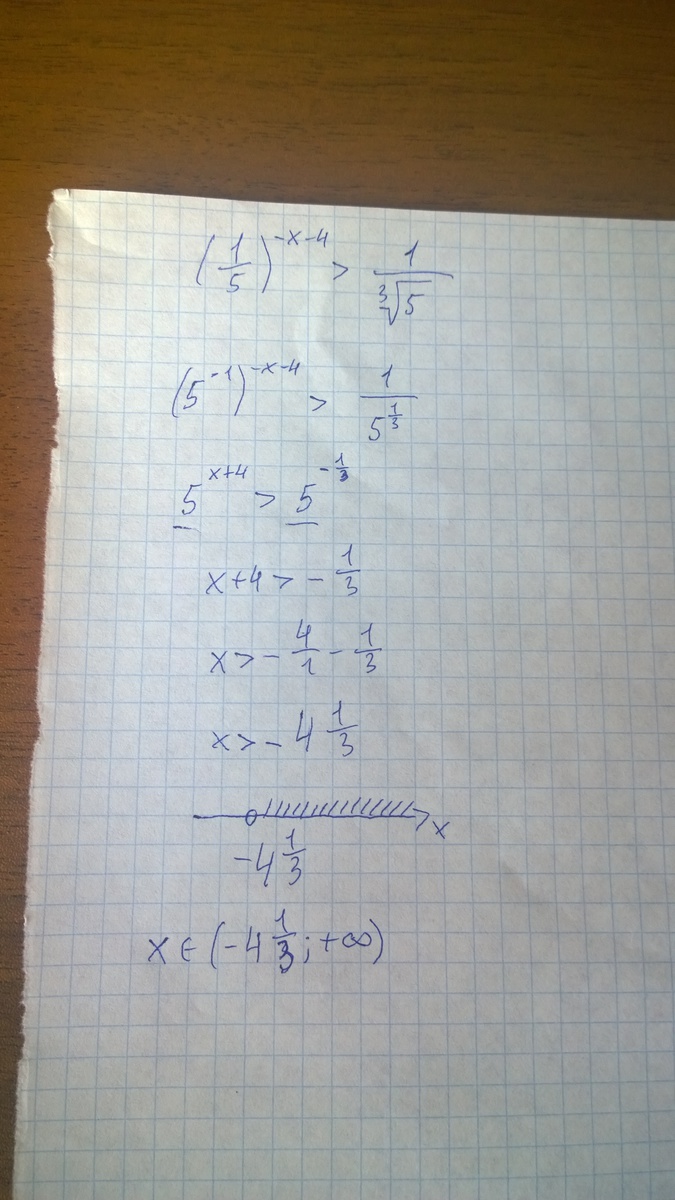 (1/5)^(-x-4) > 1/∛5
(5^(-1))^(-x-4) > 1/5^(1/3)
5^(x+4) > 5^(-1/3)
x+4 > -1/3
x > -4/1 - 1/3
x > -4 1/3
x
-4 1/3
x ∈ (-4 1/3; +∞)